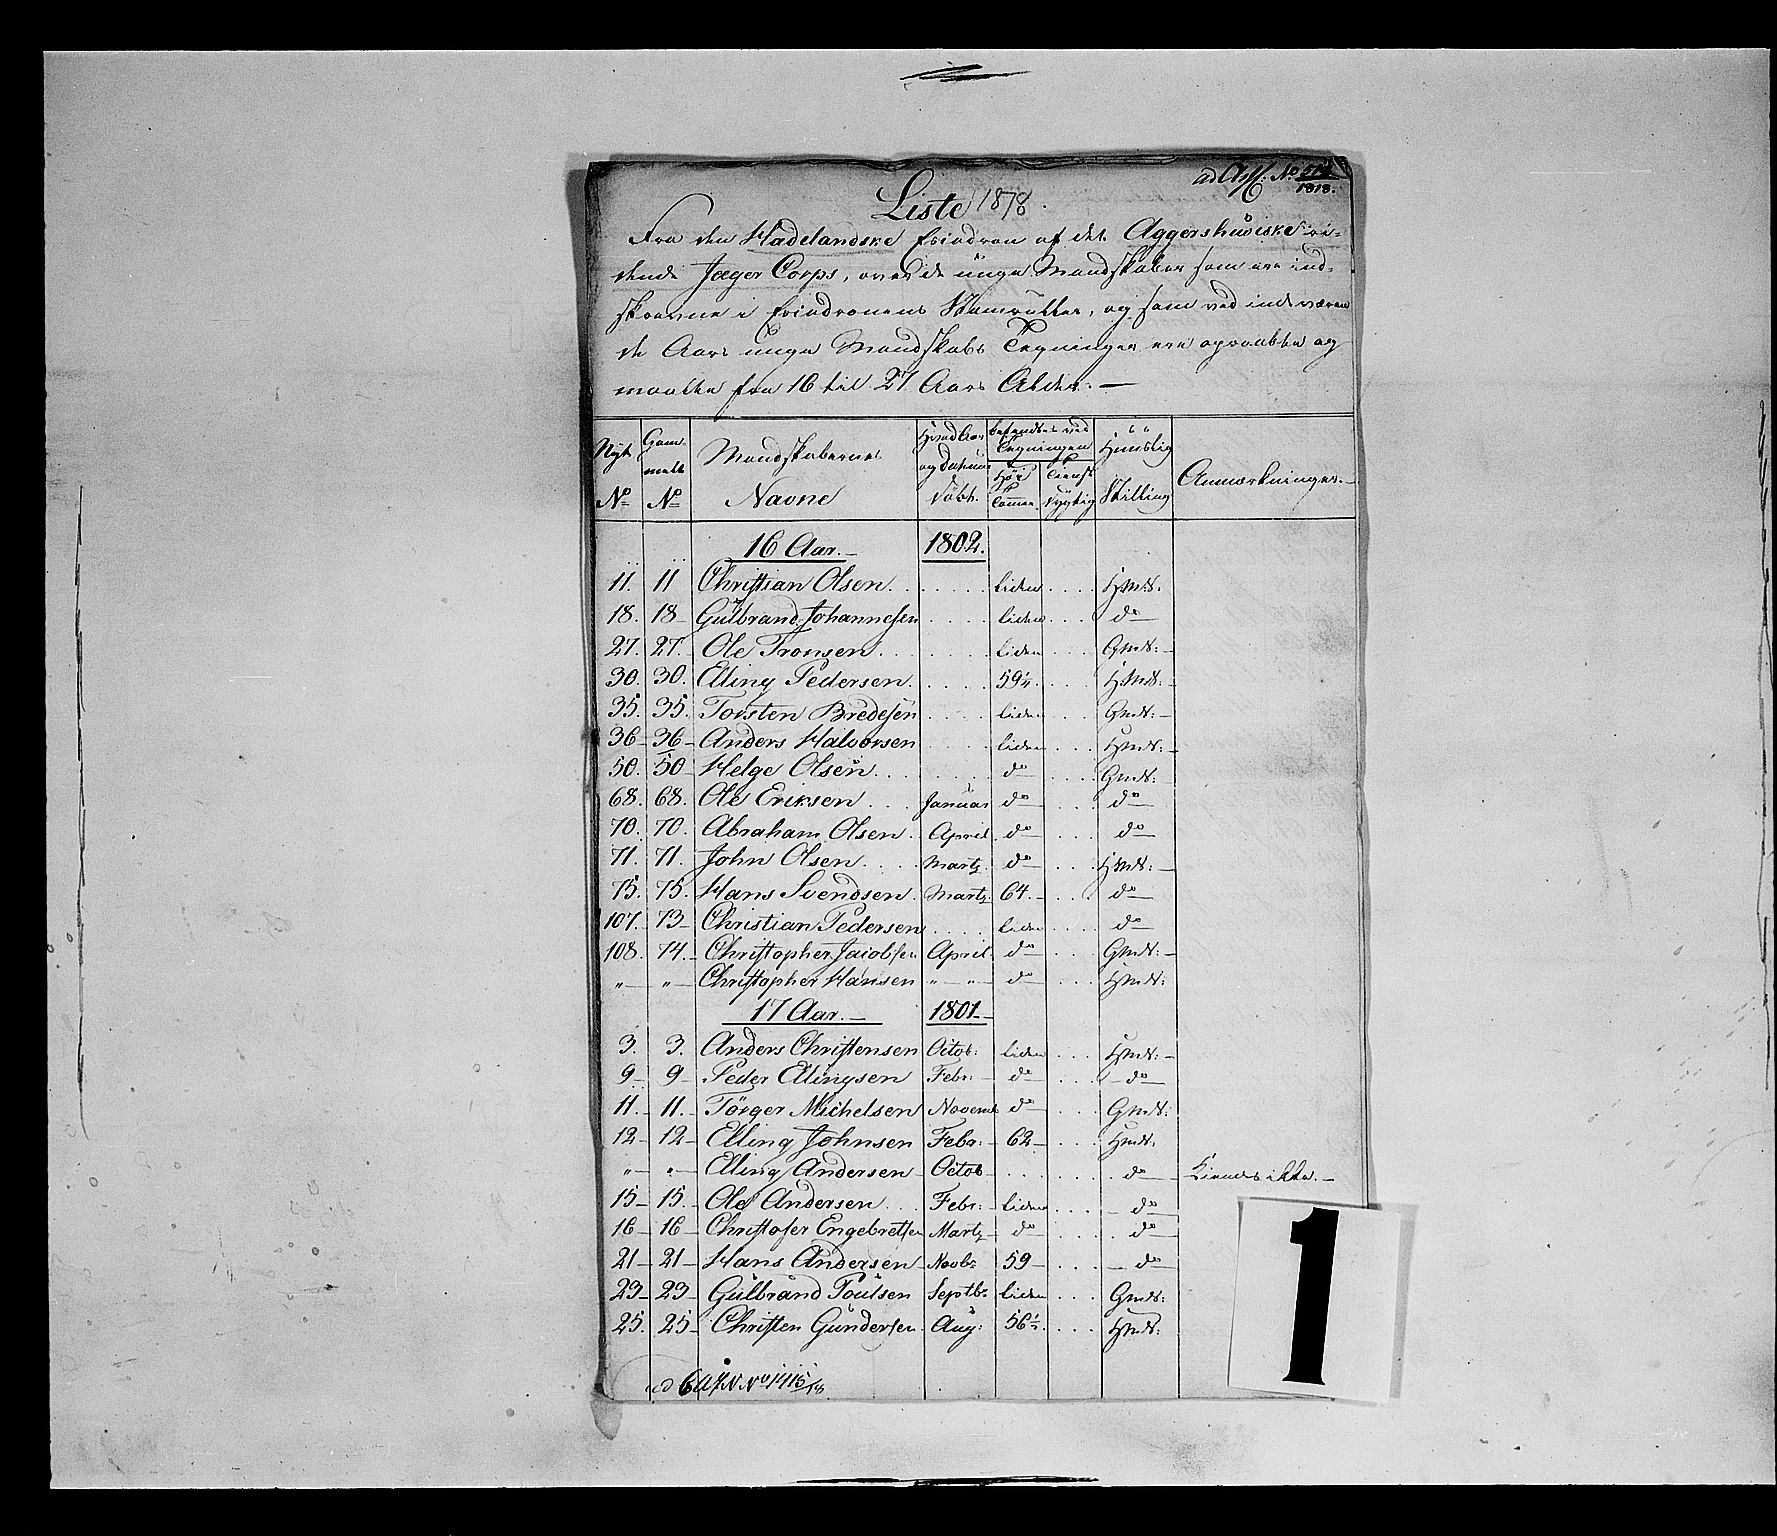 Liste 1818.
Fra den Hadelandske Esqadron af det Aggershuusiske ri-
dende Jæger Corps, over de unge Mandskaber som ere ind-
skrevne i Esqadronens Stamruller, og som ved indeværen
de Aars unge Mandskabs Tegninger ere opraabte og
maalte fra 16 til 27 Aars Alder. —
Nyt No Gam- melt No Mandskabernes Navne Hvad Aar og Datum døbt. befandtes ved Tegningen Høi Tommer Tienst dygtig Huuslig Stilling Anmærkninger. —
16 Aar. — 1802.
11. 11 Christian Olsen . . . liden . . . . Hmd:
18. 18 - Gülbrand Johannesen . . . . liden . . . . do
27. 27. - Ole Tronsen . . . liden . . . Gmd: -
30. 30. Elling Pedersen. . . . . 59¼ . . . . Hmd: -
35. 35. Torsten Bredesen . . . . liden . . . Gmd: -
36 - 36 - Anders Halvorsen . . . . liden . . . Hmd: -
50. 50 - Helge Olsen . . . . do . . . . Gmd:
68. 68. Ole Eriksen . . . Januar do . . . do
70. 70. Abraham Olsen . April. do . . . do
71. 71. John Olsen . . . . Martz. do . . . Hmd: -
75. 75. Hans Svendsen . Martz. 64. - . . . do
107. 73 - Christian Pedersen . . . . liden . . . do
108. 74. - Christopher Jacobsen April. do . . . Gmd: -
" - " - Christopher Hansen " - " - do . . . Hmd:
17 Aar. — 1801 -
3. 3. Anders Christensen Octob: liden . . . Hmd: -
9 - 9 - Peder Ellingsen Febr: - do . . . - do
11. - 11. - Törger Michelsen Novemb do . . . Gmd:
12 - 12 - Elling Johnsen Febr: - 62 - . . . Hmd:
" - " - Elling Andersen - Octob - . . . . do Kiendes ikke. —
15 - 15. - Ole Andersen . . . Febr: - liden . . . - do
16 - 16 - Christofer Engebretsen Martz - do . . . . do
21 - 21 - Hans Andersen - Novbr 59 - . . . - do
23 - 23 - Gülbrand Poulsen Septbr. liden . . . Gmd:
25. 25 - Christen Gundersen Aug: 56½ . . . . Hmd:
1